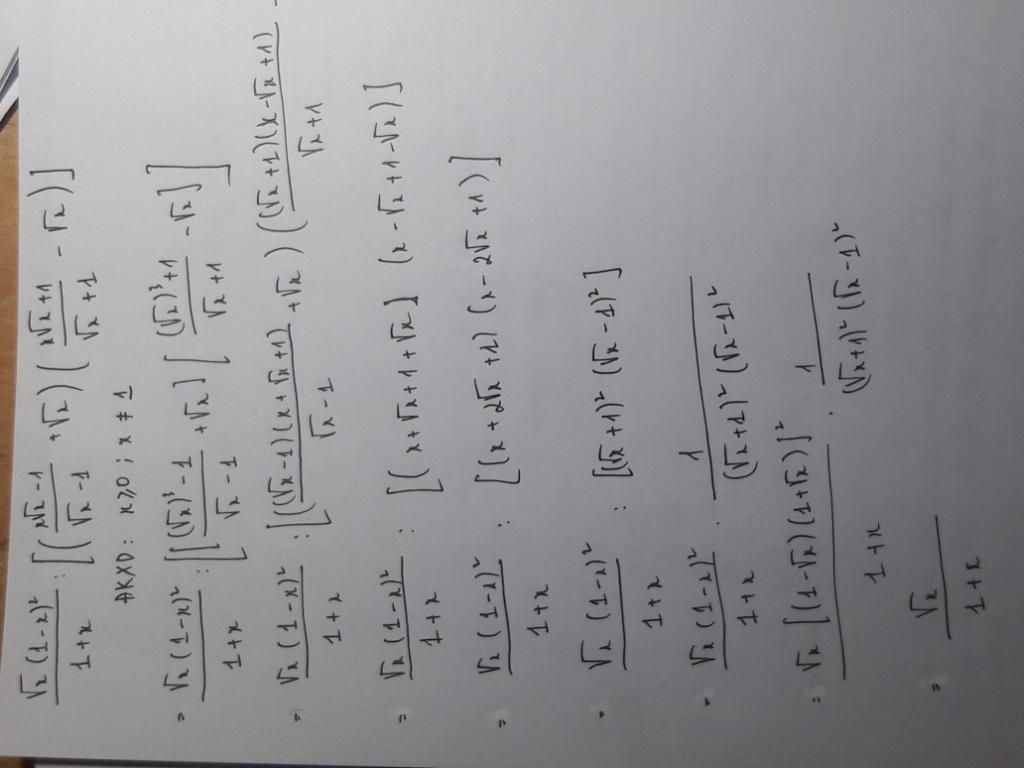 √x(1-x)²/1+x : [(x√x-1/√x-1 + √x)(x√x+1/√x+1 - √x)]
ĐKXĐ: x≥0; x≠1
= √x(1-x)²/1+x : [[(√x)³-1/√x-1 + √x][(√x)³+1/√x+1 - √x]]
= √x(1-x)²/1+x : [((√x-1)(x+√x+1)/√x-1 + √x)((√x+1)(x-√x+1)/√x+1 -
= √x(1-x)²/1+x : [(x+√x+1+√x] (x-√x+1-√x)]
= √x(1-x)²/1+x : [(x+2√x+1)(x-2√x+1)]
= √x(1-x)²/1+x : [(√x+1)²(√x-1)²]
= √x(1-x)²/1+x · 1/(√x+1)²(√x-1)²
= √x[(1-√x)(1+√x)]²/1+x · 1/(√x+1)²(√x-1)²
= √x/1+x